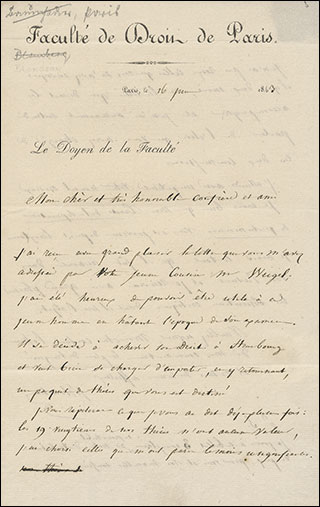 Paris
Faculté de Droit de Paris.
Paris, le 16 Juin 184
Le Doyen de la Faculté
Mon cher et très honorable confrère et ami
J'ai reçu avec grand plaisir la lettre que vous m'avez
adressée par votre jeune Cousin Mr
j'ai été heureux de pouvoir être utile à ce
jeune homme en hâtant l'époque de son examen.
Il se décide à achever son Droit à Strasbourg
et veut bien se charger d'emporter, en y retournant,
un paquet de thèses qui vous est destiné.
Je vous répéterai ce que je vous ai dit déjà plusieurs fois:
les 19 vingtièmes de nos thèses n'ont aucune valeur,
j'ai choisi celles qui m'ont paru le moins insignifiantes.